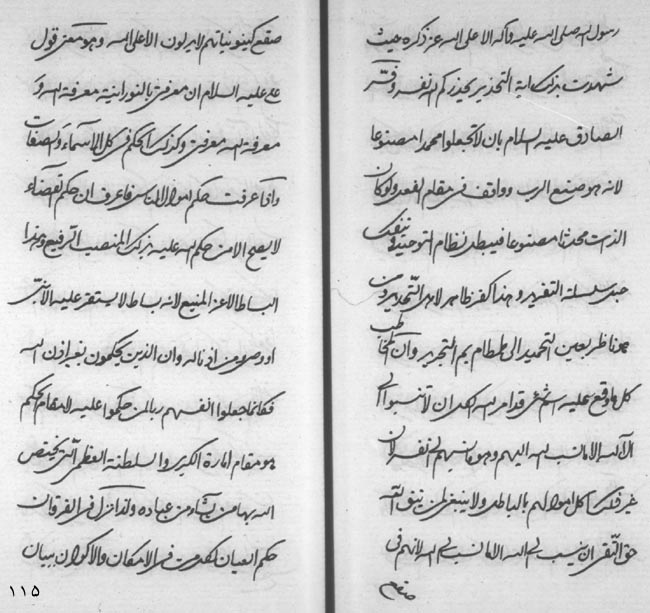 رسول الله صلى الله عليه وآله الا على الله عز ذكره حيث
شهدت بذلك اية التحذير يحذركم الله نفسه وقر
الصادق عليه السلام بان لا تجعلوا محمدا مصنوعا
لانه هو صنيع الرب وواقف في مقام الفعل ولو كان
الذات محدثا مصنوعا فيبطل نظام التوحيد
سلسلة التفريد وهذا كفر ظاهر لاهل التجريد ومن
ناظر بعين التحميد الى طمطام يم التجريد وان
كل ما وقع عليه اسم شئ قد امر الله العبد ان لا تنسبوا الى
ال الله الا ما نسب الله اليهم وهو ما نسبهم الى نفسه لان
غير ذلك كل اموالهم بالباطل ولا ينبغي لمن يتق الله
حق التقى ان ينسب الى الله الا ما نسب الى الله لانهم في
صقع
صقع كينونياتهم لا يدلون الا على الله وهو معنى قول
علي عليه السلام ان معرفتي بالنورانية معرفة الله و
معرفة الله معرفتي وكذلك الحكم في كل الاسماء والصفات
واذا عرفت حكم اموال الناس فاعرف ان حكم القضاء
لا يصح الا من حكم الله عليه بذلك المنصب الرفيع وهذا
البساط الاعز المنيع لانه بساط لا يستقر عليه الا نبي
او وصي ومن اذنا له وان الذين يحكمون بغير اذن الله
فكانما جعلوا انفسهم ربا لمن حكموا عليه لان مقام الحكم
هو مقام امارة الكبرى والسلطنة العظمى التي يختص
الله بها من يشاء من عباده ولذا نزل في الفرقان
حكم العيان في الامكان والاكوان ببيان
١١٥